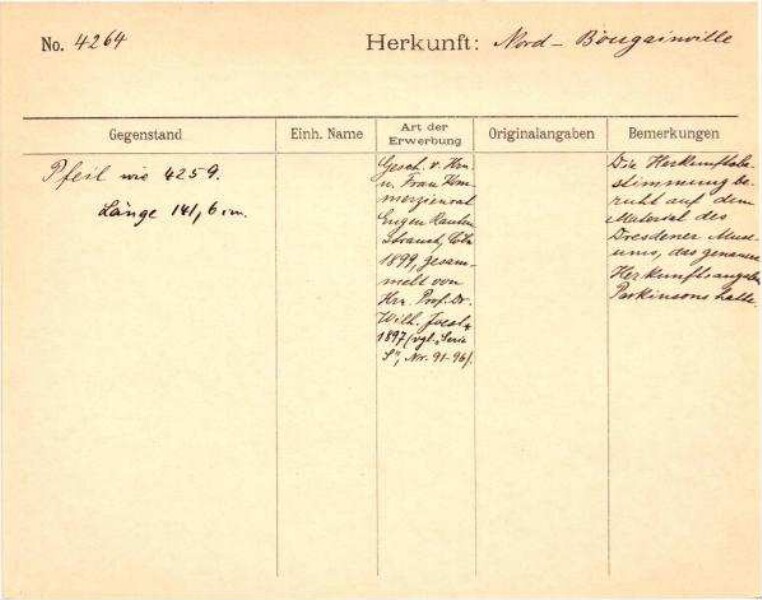 No. 4264
Herkunft: Nord - Bougainville
Gegenstand
Einh. Name
Art der
Erwerbung
Originalangaben
Bemerkungen
Pfeil wie 4259.
Länge 141,6 cm.
Gesch. v. Hrn.
u. Frau Kom-
merzienrat
Eugen Rauten-
strauch, Cöln
1899, gesam-
melt von
Hrn. Prof. Dr.
Wilh. Joest
1897 (vgl. „Serie
S", Nr. 91-96).
Die Herkunftsbe-
stimmung be-
ruht auf dem
Material des
Dresdener Muse-
ums, das genaue
Herkunftsangaben
Parkinsons hatte.